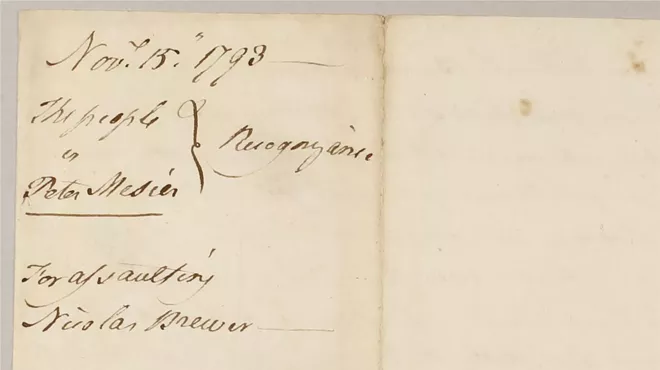 Novr. 15. 1793
The people
vs
Peter Mesier
Recognizance
For assaulting
Nicolas Brewer